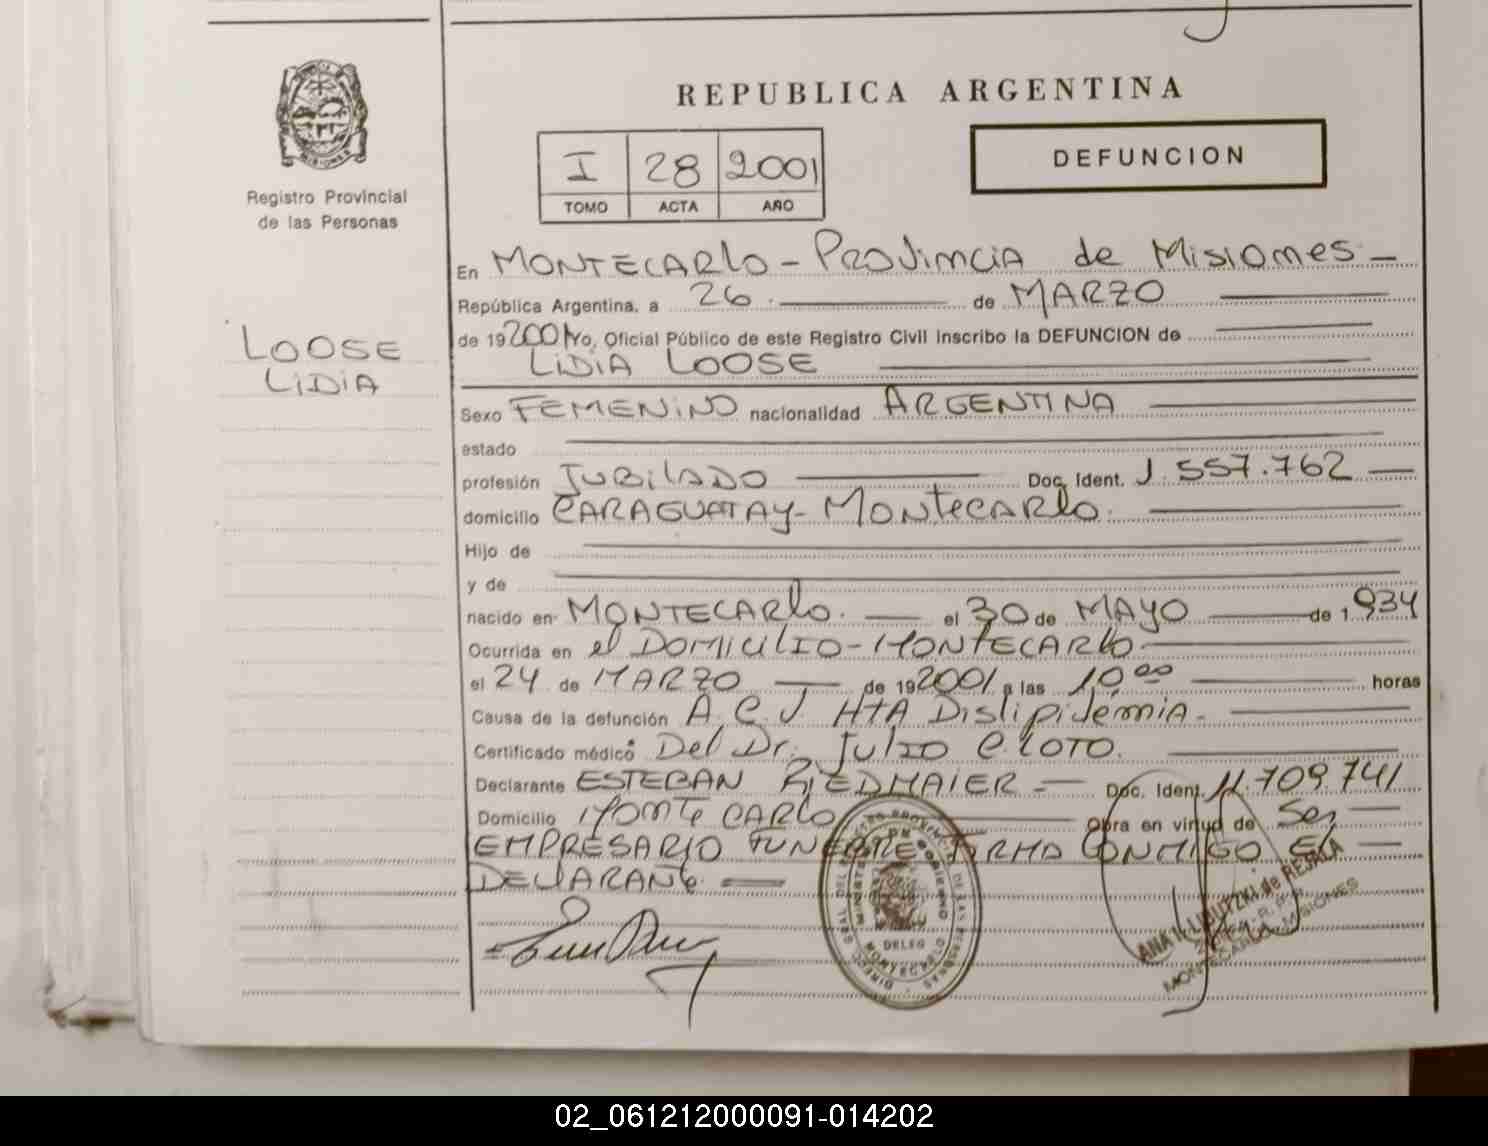 REPUBLICA ARGENTINA
I 28 2001
TOMO ACTA AÑO
DEFUNCION
MISIONES
Registro Provincial
de las Personas
LOOSE
LIDIA
En MONTECARLO - PROVINCIA de MISIONES -
República Argentina, a 26 de MARZO
de 192001 Yo, Oficial Público de este Registro Civil Inscribo la DEFUNCION de
LIDIA LOOSE
Sexo FEMENINO nacionalidad ARGENTINA
estado
profesión JUBILADO Doc. Ident. 1.557.762
domicilio CARAGUATAY - MONTECARLO.
Hijo de
y de
nacido en MONTECARLO. el 30 de MAYO de 1.934
Ocurrida en el DOMICILIO - MONTECARLO
el 24 de MARZO de 192001 a las 10 00 horas
Causa de la defunción A.C.V. HTA Dislipidémia.
Certificado médico Del Dr. Julio C. LOTO.
Declarante ESTEBAN RIEDMAIER - Doc. Ident. 11.709.741
Domicilio MONTE CARLO Obra en virtud de Ser
EMPRESARIO FUNEBRE FIRMA CONMIGO EL
DECLARANTE.
DELEG
MONTECARLO
ANA de RESALA
MONTECARLO - MISIONES
02_061212000091-014202